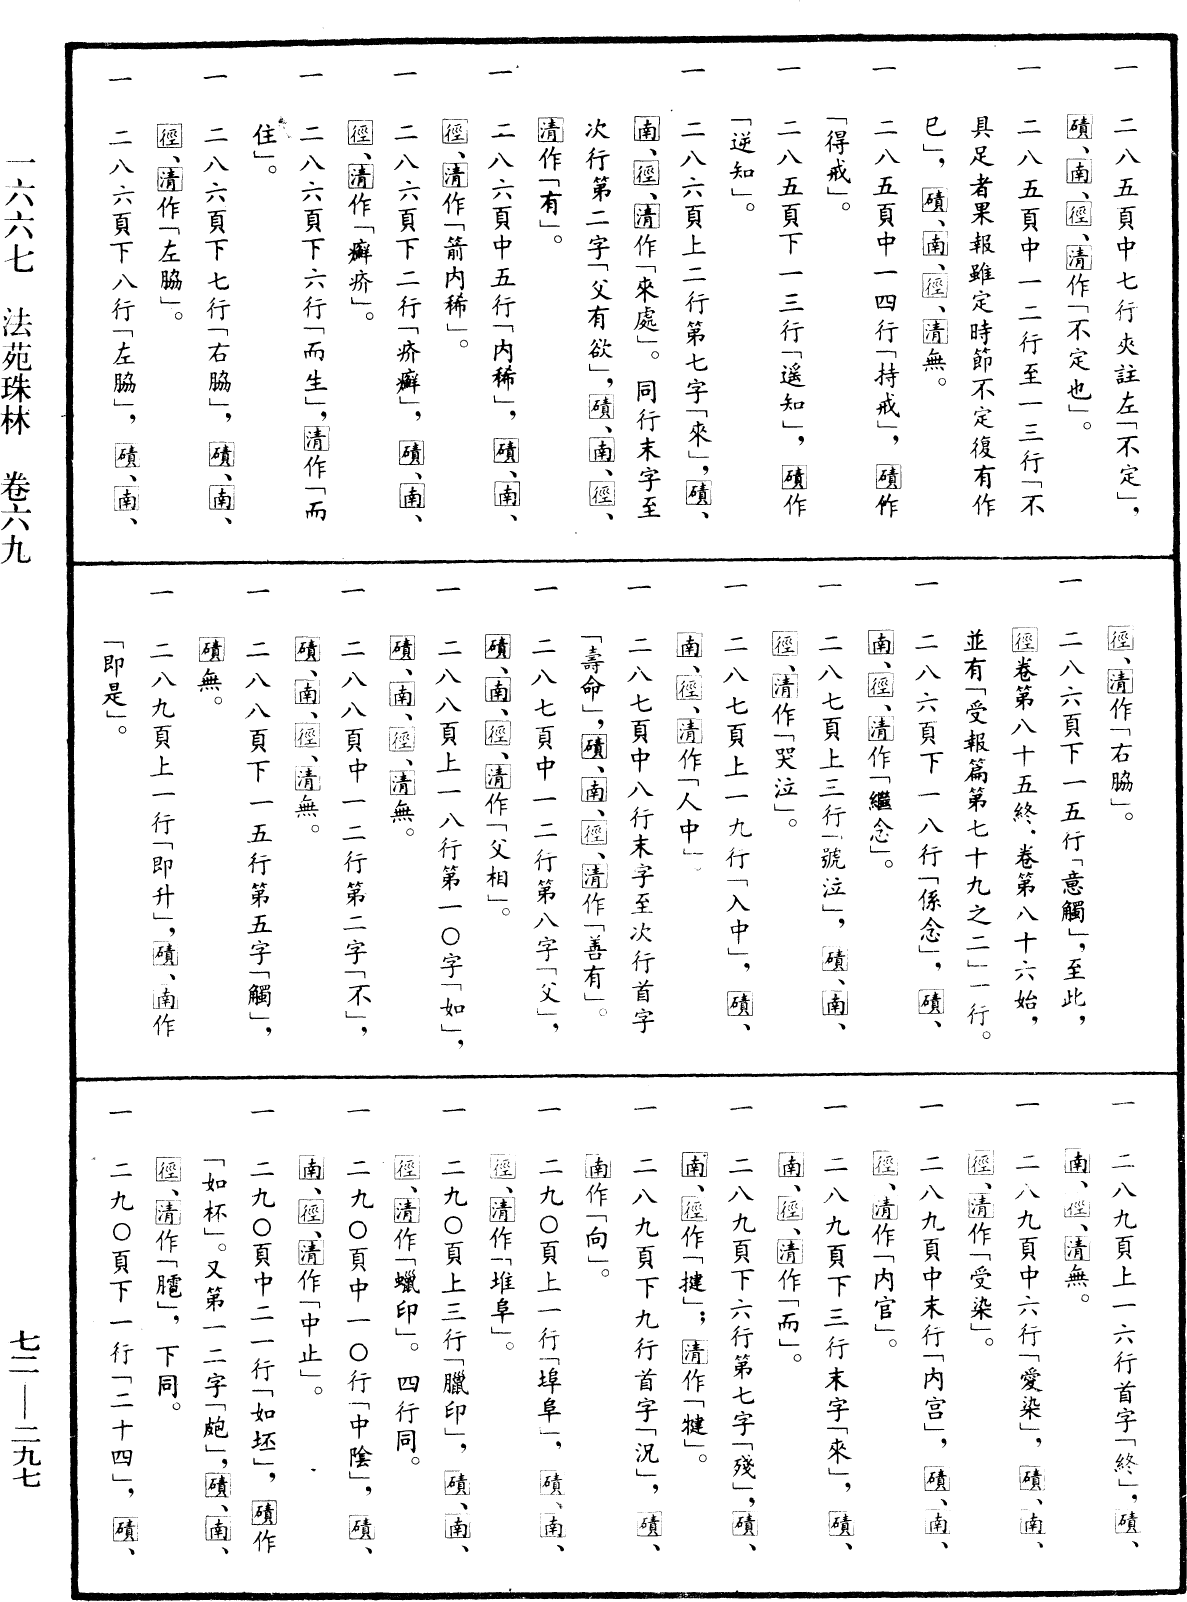 一　二八五頁中七行夾註左「不定」，
磧、南、徑、清作「不定也」。
一　二八五頁中一二行至一三行「不
具足者果報雖定時節不定復有作
巳」，磧、南、徑、清無。
一　二八五頁中一四行「持戒」，磧作
「得戒」。
一　二八五頁下一三行「遥知」，磧作
「逆知」。
一　二八六頁上二行第七字「來」，磧、
南、徑、清作「來處」。同行末字至
次行第二字「父有欲」，磧、南、徑、
清作「有」。
一　二八六頁中五行「內稀」，磧、南、
徑、清作「箭內稀」。
一　二八六頁下二行「疥癬」，磧、南、
徑、清作「癬疥」。
一　二八六頁下六行「而生」，清作「而
住」。
一　二八六頁下七行「右脇」，磧、南、
徑、清作「左脇」。
一　二八六頁下八行「左脇」，磧、南、
徑、清作「右脇」。
一　二八六頁下一五行「意觸」，至此，
徑卷第八十五終，卷第八十六始，
並有「受報篇第七十九之二」一行。
一　二八六頁下一八行「係念」，磧、
南、徑、清作「繼念」。
一　二八七頁上三行「號泣」，磧、南、
徑、清作「哭泣」。
一　二八七頁上一九行「入中」，磧、
南、徑、清作「人中」
一　二八七頁中八行末字至次行首字
「壽命」，磧、南、徑、清作「善有」。
一　二八七頁中一二行第八字「父」，
磧、南、徑、清作「父相」。
一　二八八頁上一八行第一〇字「如」，
磧、南、徑、清無。
一　二八八頁中一二行第二字「不」，
磧、南、徑、清無。
一　二八八頁下一五行第五字「觸」，
磧無。
一　二八九頁上一行「即升」，磧、南作
「即是」。
一　二八九頁上一六行首字「終」，磧、
南、徑、清無。
一　二八九頁中六行「愛染」，磧、南、
徑、清作「受染」。
一　二八九頁中末行「內宫」，磧、南、
徑、清作「內官」。
一　二八九頁下三行末字「來」，磧、
南、徑、清作「而」。
一　二八九頁下六行第七字「殘」，磧、
南、徑作「揵」；清作「犍」。
一　二八九頁下九行首字「況」，磧、
南作「向」。
一　二九〇頁上一行「埠阜」，磧、南、
徑、清作「堆阜」。
一　二九〇頁上三行「臘印」，磧、南、
徑、清作「蠟印」。四行同。
一　二九〇頁中一〇行「中陰」，磧、
南、徑、清作「中止」。
一　二九〇頁中二一行「如坯」，磧作
「如杯」。又第一二字「皰」，磧、南、
徑、清作「䐗」，下同。
一　二九〇頁下一行「二十四」，磧、
一六六七　法苑珠林　卷六九
七二——二九七